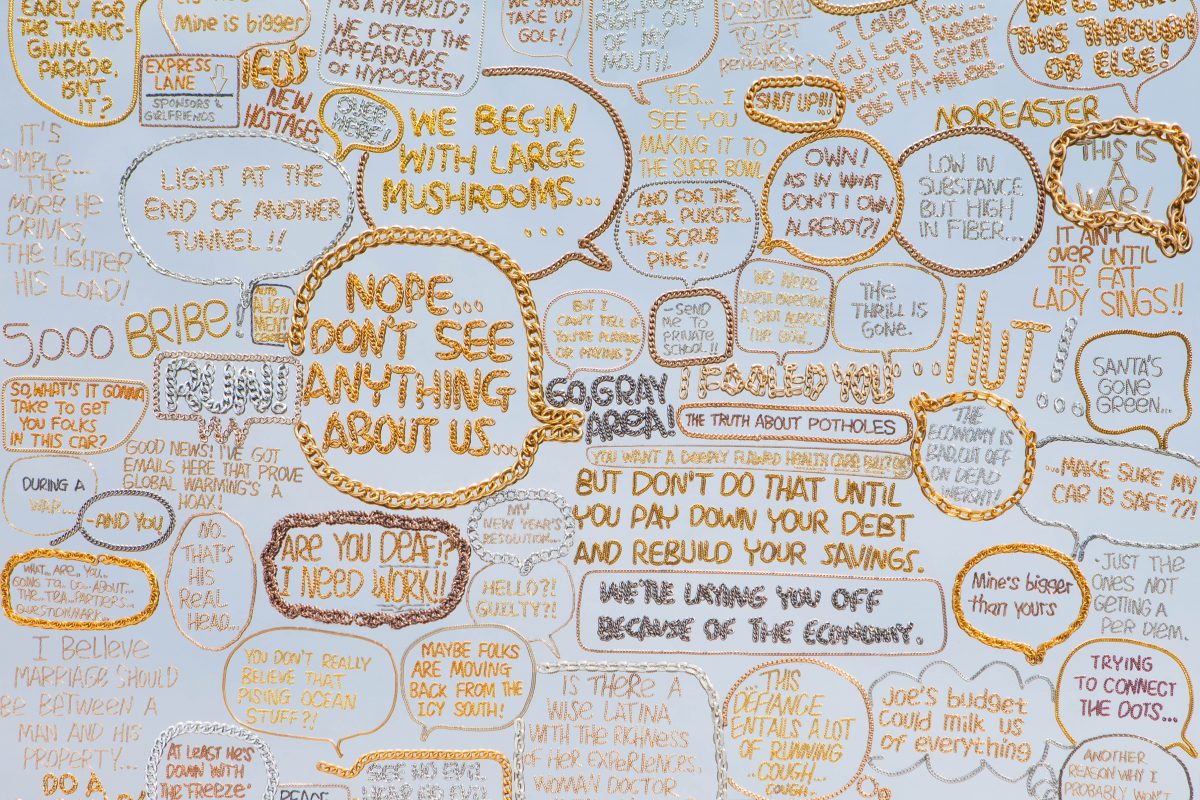 EARLY FOR
THE THANKS-
GIVING
PARADE.
ISN'T
IT?
Mine is bigger
EXPRESS
LANE
SPONSORS &
GIRLFRIENDS
NEW
HOSTAGES
AS A HYBRID?
WE DETEST THE
APPEARANCE
OF HYPOCRISY
WE SHOULD
TAKE UP
GOLF!
RIGHT OUT
OF MY
MOUTH.
DESIGNED
TO GET
STUCK.
REMEMBER?
I LOVE YOU..
YOU LOVE ME....
WE'RE A GREAT
BIG FA-MI-LY...
THIS THROUGH
OR ELSE!
OVER
HERE!
WE BEGIN
WITH LARGE
MUSHROOMS...
...
YES... I
SEE YOU
MAKING IT TO
THE SUPER BOWL
SHUT UP!!!
NOR'EASTER
IT'S
SIMPLE...
THE
MORE HE
DRINKS,
THE LIGHTER
HIS LOAD!
LIGHT AT THE
END OF ANOTHER
TUNNEL!!
AND FOR THE
LOCAL PURISTS..
THE SCRUB
PINE!!
OWN!
AS IN WHAT
DON'T I OWN
ALREADY?!
LOW IN
SUBSTANCE
BUT HIGH
IN FIBER...
THIS IS
A
WAR!
IT AIN'T
OVER UNTIL
THE FAT
LADY SINGS!!
5,000
BRIBE!
ALIGN
MENT
NOPE...
DON'T SEE
ANYTHING
ABOUT US...
BUT I
CAN'T TELL IF
YOU'RE PLAYING
OR PAYING?
-SEND
ME TO
PRIVATE
SCHOOL!!
WE WERE
A SHOT ACROSS
THE BOW...
THE
THRILL IS
GONE.
HUT!
...
SANTA'S
GONE
GREEN...
SO, WHAT'S IT GONNA
TAKE TO GET
YOU FOLKS
IN THIS CAR?
RUN!
SO, GRAY
AREA!
I FOOLED YOU
THE TRUTH ABOUT POTHOLES
YOU WANT A DEEPLY FLAWED HEALTH CARE BILL?
THE
ECONOMY IS
BAD, CUT OFF
OR DEAD
WEIGHT!
...MAKE SURE MY
CAR IS SAFE???
GOOD NEWS! I'VE GOT
EMAILS HERE THAT PROVE
GLOBAL WARMING'S A
HOAX!
DURING A
WAR...
-AND YOU
NO.
THAT'S
HIS
REAL
HEAD...
ARE YOU DEAF!?
I NEED WORK!!
MY
NEW YEAR'S
RESOLUTION...
HELLO?!
GUILTY?!
BUT DON'T DO THAT UNTIL
YOU PAY DOWN YOUR DEBT
AND REBUILD YOUR SAVINGS.
WE'RE LAYING YOU OFF
BECAUSE OF THE ECONOMY.
Mine's bigger
than yours
-JUST THE
ONES NOT
GETTING A
PER DIEM.
WHAT.. ARE.. YOU..
GOING TO.. DO.. ABOUT..
THE.. TEA.. PARTIERS...
QUESTIONMARK...
I BELIEVE
MARRIAGE SHOULD
BE BETWEEN A
MAN AND HIS
PROPERTY...
DO A
YOU DON'T REALLY
BELIEVE THAT
RISING OCEAN
STUFF?!
MAYBE FOLKS
ARE MOVING
BACK FROM THE
ICY SOUTH!
IS THERE A
WISE LATINA
WITH THE RICHNESS
OF HER EXPERIENCES,
WOMAN DOCTOR
...THIS
DEFIANCE
ENTAILS A LOT
OF RUNNING
..COUGH...
COUGH..
JOE'S budget
could milk us
of everything
TRYING
TO CONNECT
THE DOTS...
AT LEAST HE'S
DOWN WITH
THE "FREEZE"
PEACE
SEE NO EVIL
ANOTHER
REASON WHY I
PROBABLY WON'T